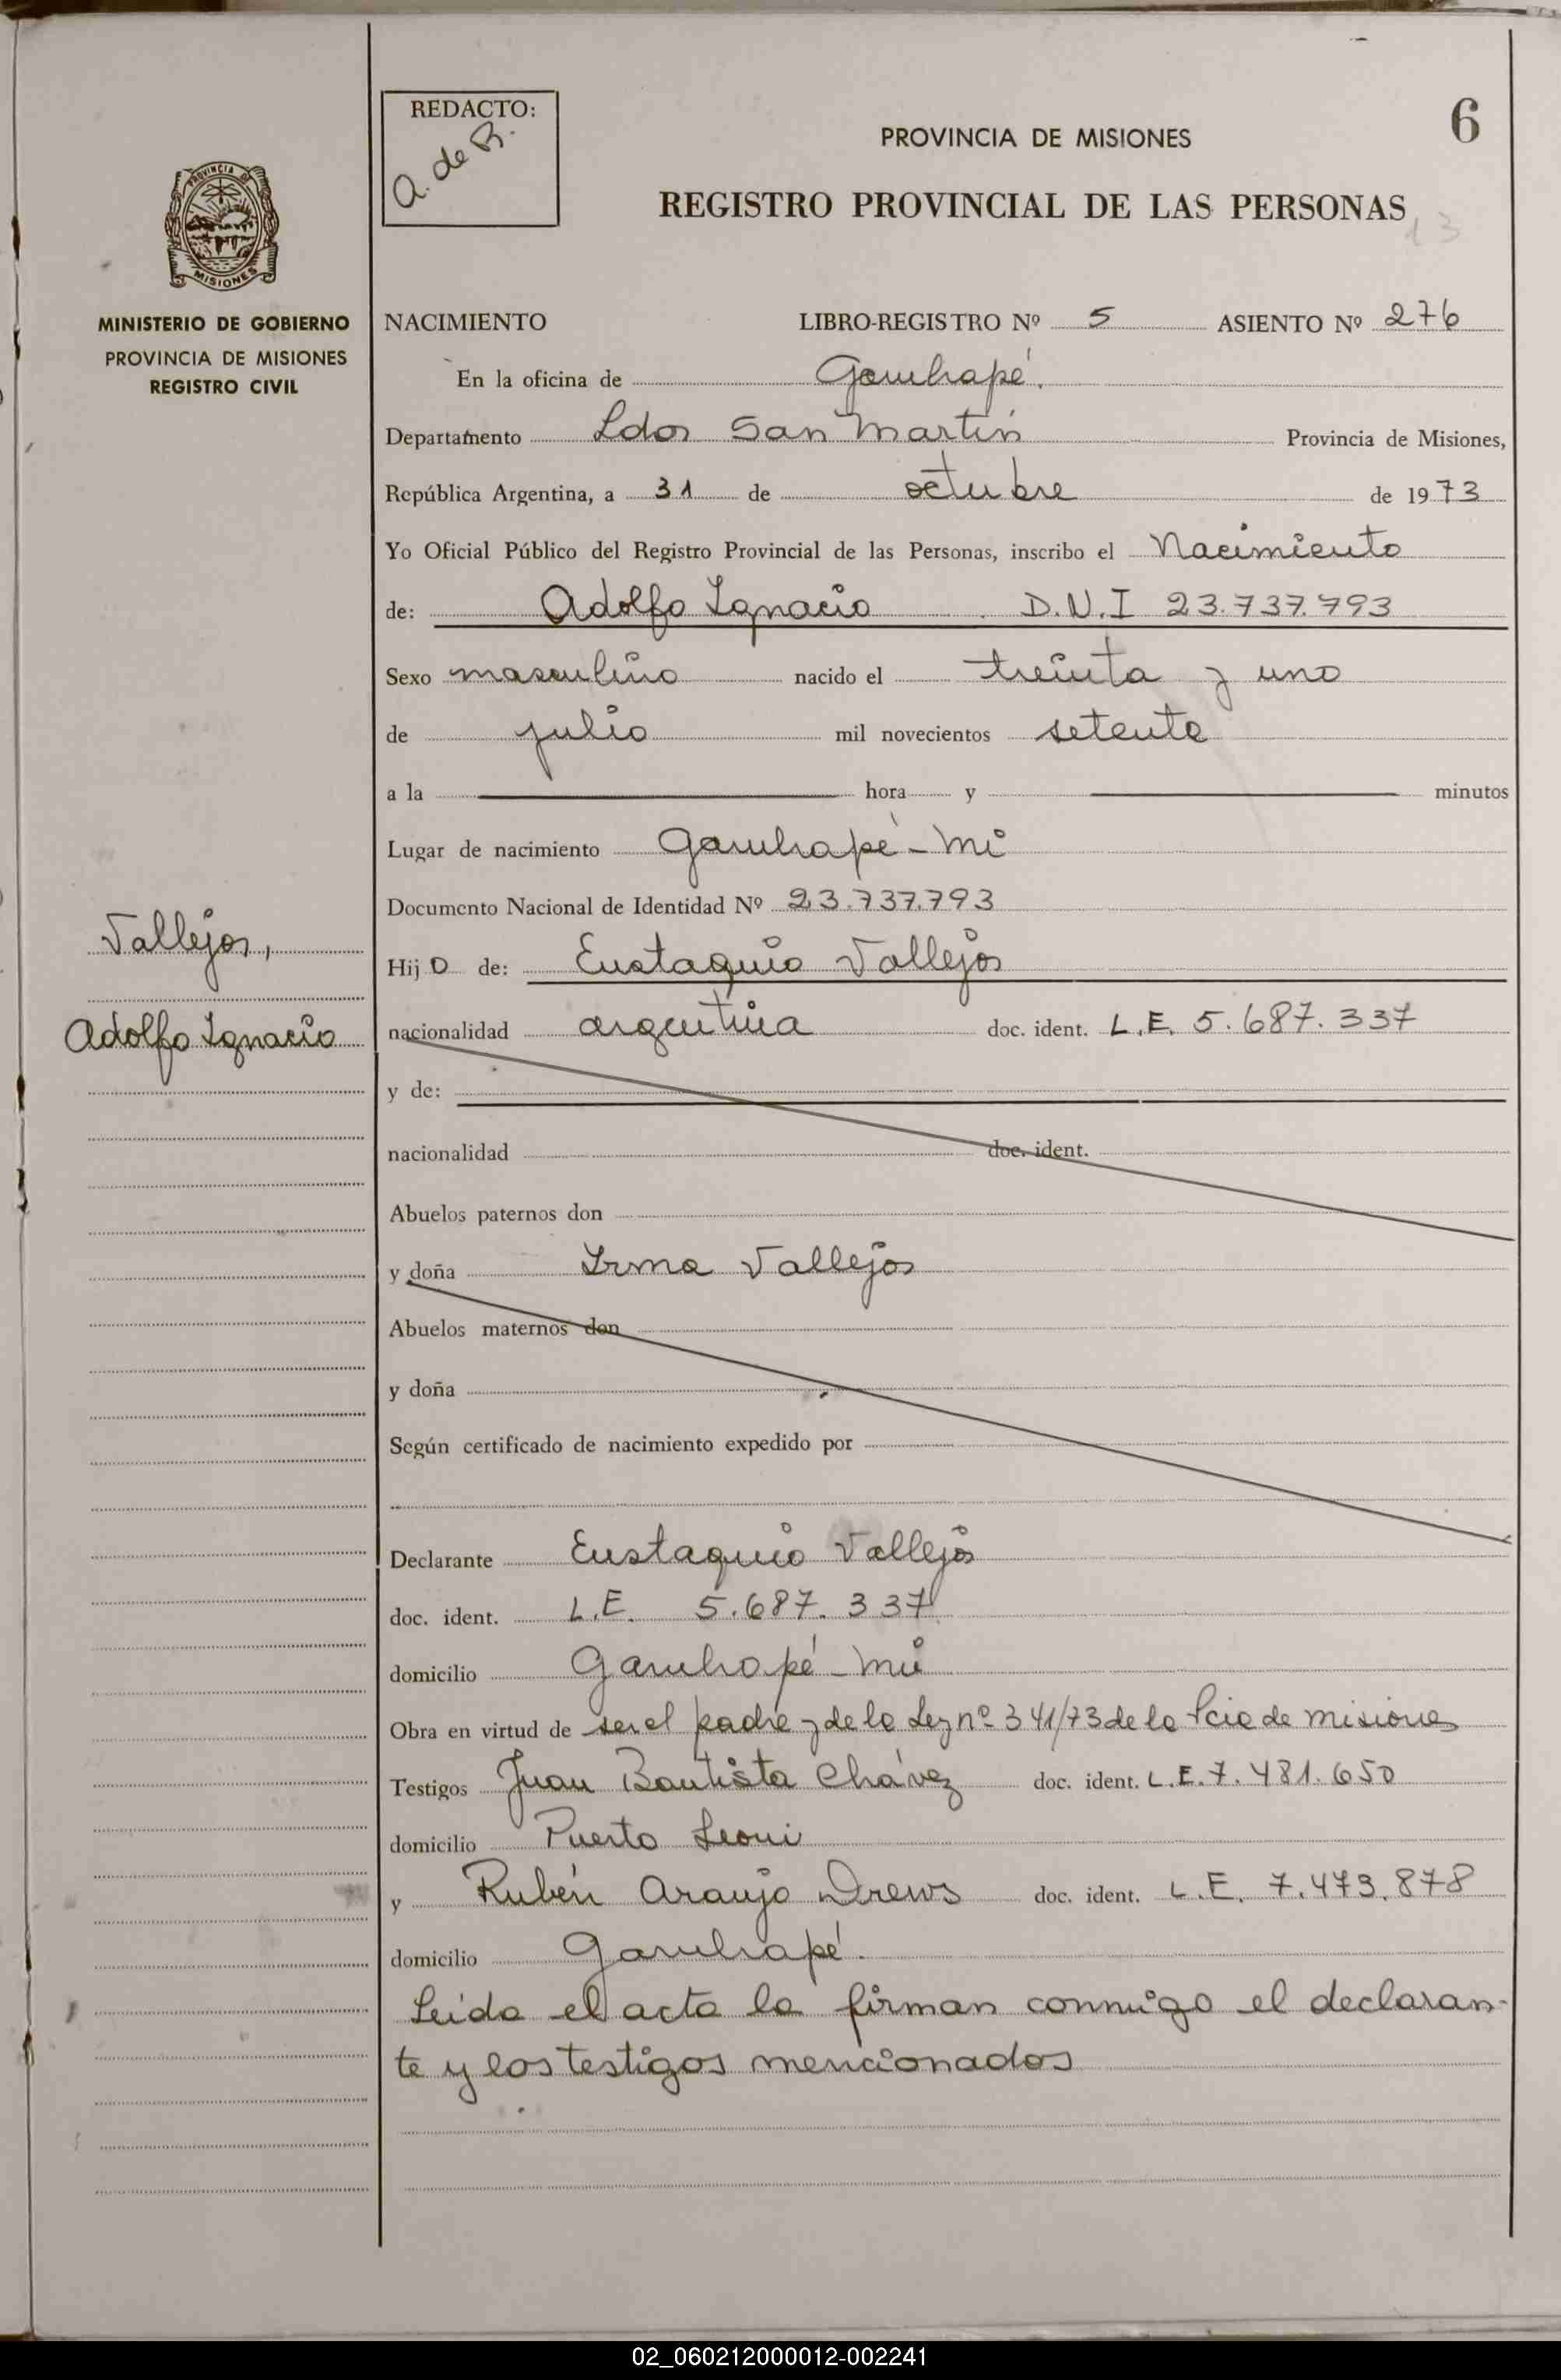 REDACTO:
A. de R.
6
PROVINCIA DE MISIONES
REGISTRO PROVINCIAL DE LAS PERSONAS
13
PROVINCIA DE
MISIONES
MINISTERIO DE GOBIERNO
PROVINCIA DE MISIONES
REGISTRO CIVIL
NACIMIENTO LIBRO-REGISTRO Nº 5 ASIENTO Nº 276
En la oficina de Garuhapé.
Departamento Ldor San Martín Provincia de Misiones,
República Argentina, a 31 de octubre de 1973
Yo Oficial Público del Registro Provincial de las Personas, inscribo el Nacimiento
de: Adolfo Ignacio D.N.I 23.737.793
Sexo masculino nacido el treinta y uno
de julio mil novecientos setenta
a la hora y minutos
Lugar de nacimiento Garuhapé - Mi
Documento Nacional de Identidad Nº 23.737.793
Vallejos,
Adolfo Ignacio
Hijo de: Eustaquio Vallejos
nacionalidad argentina doc. ident. L.E. 5.687.337
y de:
nacionalidad doc. ident.
Abuelos paternos don
y doña Irma Vallejos
Abuelos maternos don
y doña
Según certificado de nacimiento expedido por
Declarante Eustaquio Vallejos
doc. ident. L.E. 5.687.337
domicilio Garuhapé - Mi
Obra en virtud de ser el padre y de la Ley nº 341/73 de la Pcia de Misiones
Testigos Juan Bautista Chávez doc. ident. L.E. 7.481.650
domicilio Puerto Leoni
y Rubén Araujo Drews doc. ident. L.E. 7.473.878
domicilio Garuhapé.
Leida el acta la firman conmigo el declaran-
te y los testigos mencionados
02_060212000012-002241